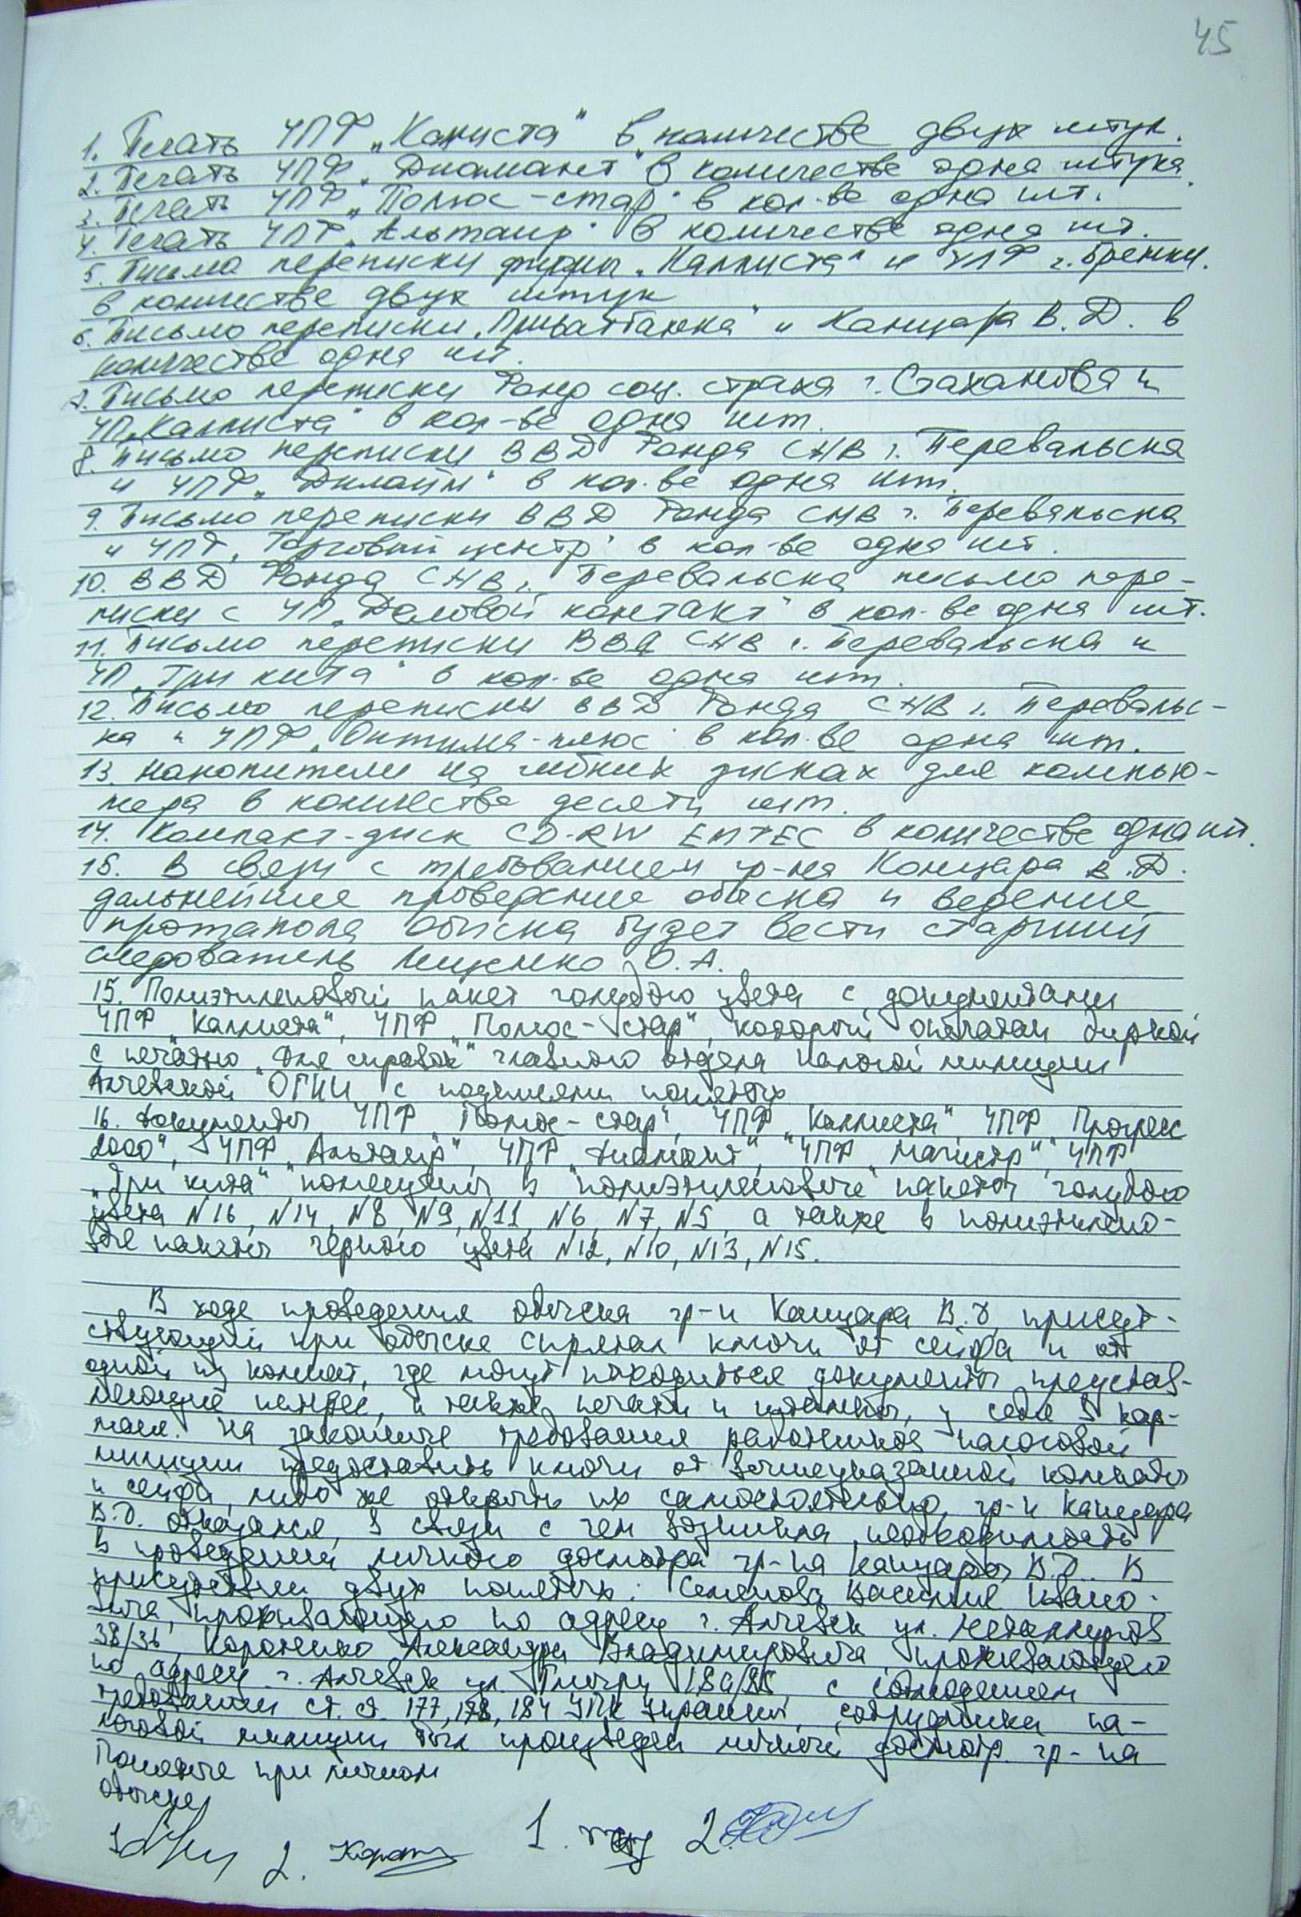 45
1. Печать ЧПФ „Калиста" в количестве двух штук.
2. Печать ЧПФ „Диамант" в количестве одна штука.
3. Печать ЧПФ „Полюс-стар" в кол-ве одна шт.
4. Печать ЧПФ „Альтаир" в количестве одна шт.
5. Письмо переписки фирмы „Каллиста" и ЧПФ г. Брянки.
в количестве двух штук
6. Письмо переписки „Приватбанка" и Канцара В.Д. в
количестве одна шт.
7. Письмо переписки Фонд соц. страха г. Стаханова и
ЧП „Каллиста" в кол-ве одна шт.
8. Письмо переписки ВВД Фонда СНВ г. Перевальска
и ЧПФ „Дилайм" в кол-ве одна шт.
9. Письмо переписки ВВД Фонда СНВ г. Перевальска
и ЧПФ „Торговый центр" в кол-ве одна шт.
10. ВВД Фонда СНВ г. Перевальска письмо пере-
писки с ЧП „Деловой контакт" в кол-ве одна шт.
11. Письмо переписки ВВД СНВ г. Перевальска и
ЧП „Три кита" в кол-ве одна шт.
12. Письмо переписки ВВД Фонда СНВ г. Перевальс-
ка и ЧПФ „Оптима-плюс" в кол-ве одна шт.
13. Накопители на гибких дисках для компью-
тера в количестве десяти шт.
14. Компакт-диск CD-RW EMTEC в количестве одна шт.
15. В связи с требованием гр-на Канцара В.Д.
дальнейшие проведение обыска и ведение
протокола обыска будет вести старший
следователь Ищенко О.А.
15. Полиэтиленовый пакет голубого цвета с документами
ЧПФ „Каллиста", ЧПФ „Полюс-стар", который опечатан биркой
с печатью „Для справок" главного отдела налогой милиции
Алчевской ОГНИ с подписями понятых
16. Документы ЧПФ „Полюс-стар", ЧПФ „Каллиста", ЧПФ „Прогресс
2000", ЧПФ „Альтаир", ЧПФ „Диамант", ЧПФ „Магистр", ЧПФ
„Три кита" помещены в полиэтиленовые пакеты голубого
цвета N16, N14, N8, N9, N11, N6, N7, N5, а также в полиэтилено-
вые пакеты черного цвета N12, N10, N13, N15.
В ходе проведения обыска гр-н Канцара В.Д. присут-
ствующий при обыске спрятал ключи от сейфа и от
одной из комнат, где могут находиться документы представ-
ляющие интерес, а также печати и штампы, у себя в кар-
мане. На законные требования работников налоговой
милиции предоставить ключи от вышеуказанной комнаты
и сейфа, либо же открыть их самостоятельно, гр-н Канцара
В.Д. отказался, в связи с чем возникла необходимость
в проведении личного досмотра гр-на Канцары В.Д. В
присутствии двух понятых: Семенова Василия Ивано-
вича, проживающего по адресу г. Алчевск ул. Металлургов
38/36, Короненко Александра Владимировича, проживающего
по адресу г. Алчевск ул. Гмыри с соблюдением
требований ст. ст. 177, 178, 184 УПК Украины, сотрудники на-
логовой милиции был произведен личный досмотр гр-на
Понятые при личном
обыске
1. 2. 1. 2.